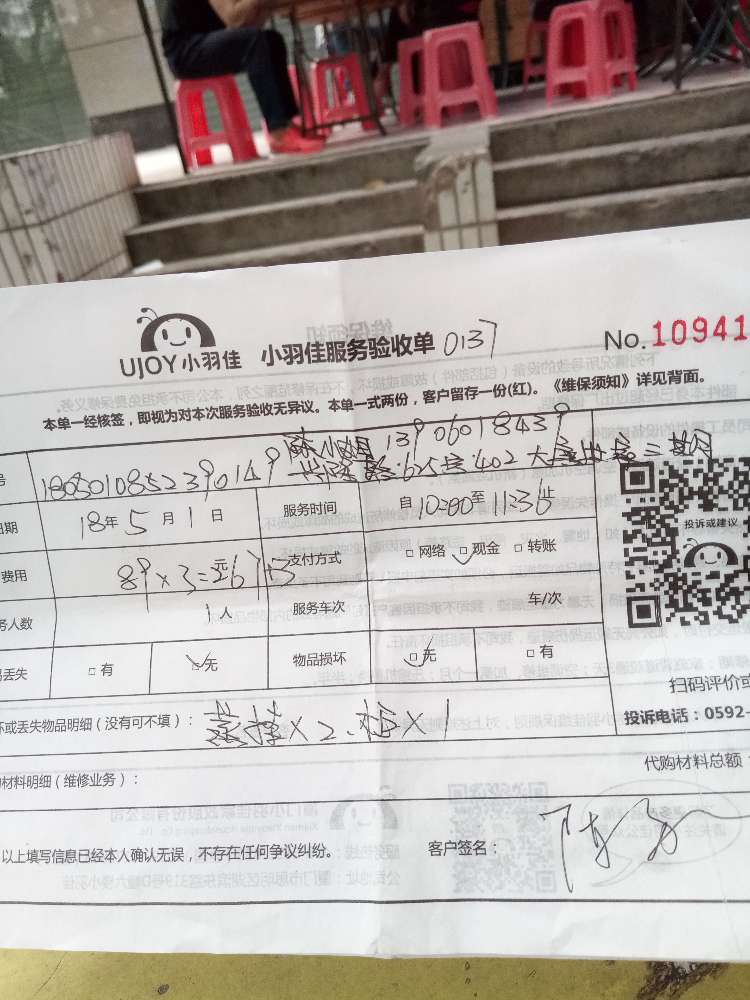 UJOY小羽佳 小羽佳服务验收单 0137 No.10941
本单一经核签，即视为对本次服务验收无异议。本单一式两份，客户留存一份(红)。《维保须知》详见背面。
号 1805010852390149 陈小姐 139 06018439
402
日期 18年5月1日 服务时间 自10:00至11:36止
费用 89×3=元267+5 支付方式 □网络 □现金 □转账
务人数 1人 服务车次 车/次
丢失 □有 □无 物品损坏 □无 □有
投诉或建议
扫码评价或
坏或丢失物品明细（没有可不填）： 蒸挂×2、柜×1
投诉电话：0592-
材料明细（维修业务）： 代购材料总额：
以上填写信息已经本人确认无误，不存在任何争议纠纷。 客户签名：